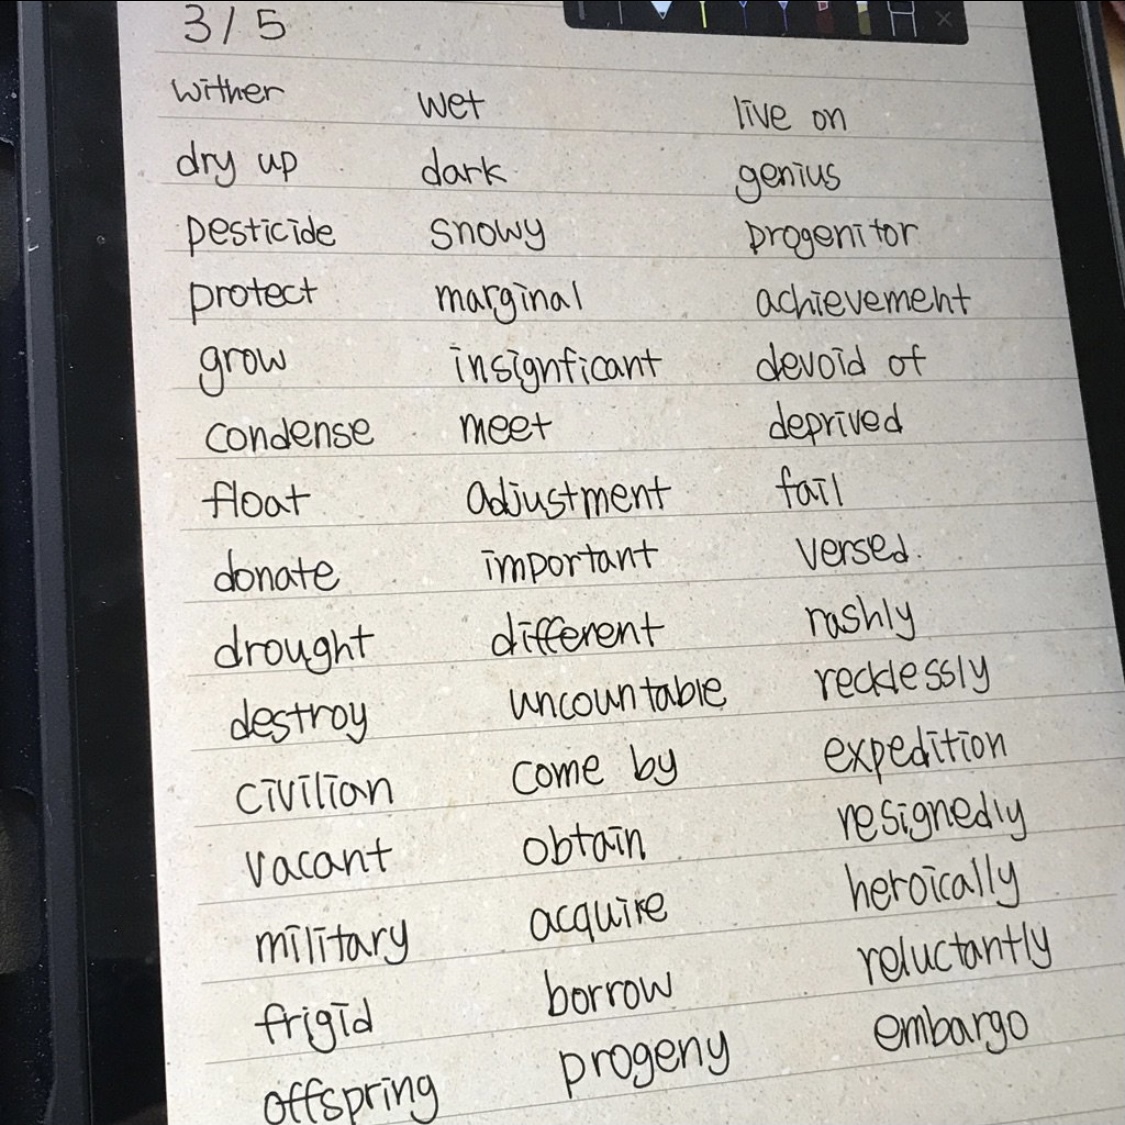 3/5
wither
dry up
pesticide
protect
grow
condense
float
donate
drought
destroy
civilian
vacant
military
frigid
offspring
wet
dark
snowy
marginal
insignficant
meet
adjustment
important
different
uncountable
come by
obtain
acquire
borrow
progeny
live on
genius
progenitor
achievement
devoid of
deprived
fail
versed.
rashly
recklessly
expedition
resignedly
heroically
reluctantly
embargo